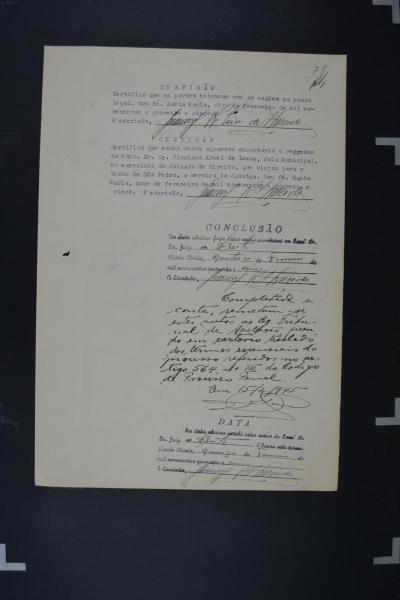 78
CERTIDÃO
Certifico que as partes entraram com as razões no prazo
legal. Dou fé. Santa Maria, oito de fevereiro de mil no-
vecentos e quarenta e cinco.
O escrivão,
CERTIDÃO
Certifico que estes autos aguardam em cartorio o regresso
do Exmo. Sr. Dr. Floriano
Juiz Municipal,
no exercicio do Juizado de Direito, que viajou para o
termo de São Pedro, a serviço da Justiça. Dou fé. Santa
Maria, nove de fevereiro de mil novecentos e quarenta e
cinco. O escrivão,
CONCLUSÃO
Na data abaixo faço estes autos conclusos ao Exmº Sr.
Dr. Juiz de Direito
Santa Maria, de de
mil novecentos quarenta e cinco
O Escrivão,
Completada a
conta, remetam-se
estes autos ao Eg. Tribu-
nal de Apelação, fican-
do em cartorio traslado
dos termos essenciais do
processo referidos no ar-
tigo 564, nº III, do Codigo
de Processo Penal.
Em 15/2/1945
DATA
Na data abaixo recebi estes autos do Exmº
Dr. Juiz de Direito e lavro este termo.
Santa Maria, de de
mil novecentos quarenta e cinco
O Escrivão,